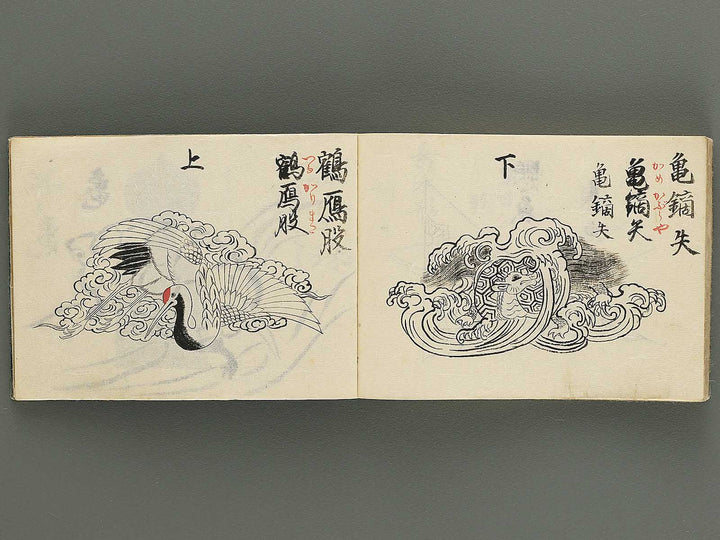 亀鏑矢
かめかぶらや
亀鏑矢
亀鏑矢
下
鶴鴈股
つるかりまた
鶴鴈股
上